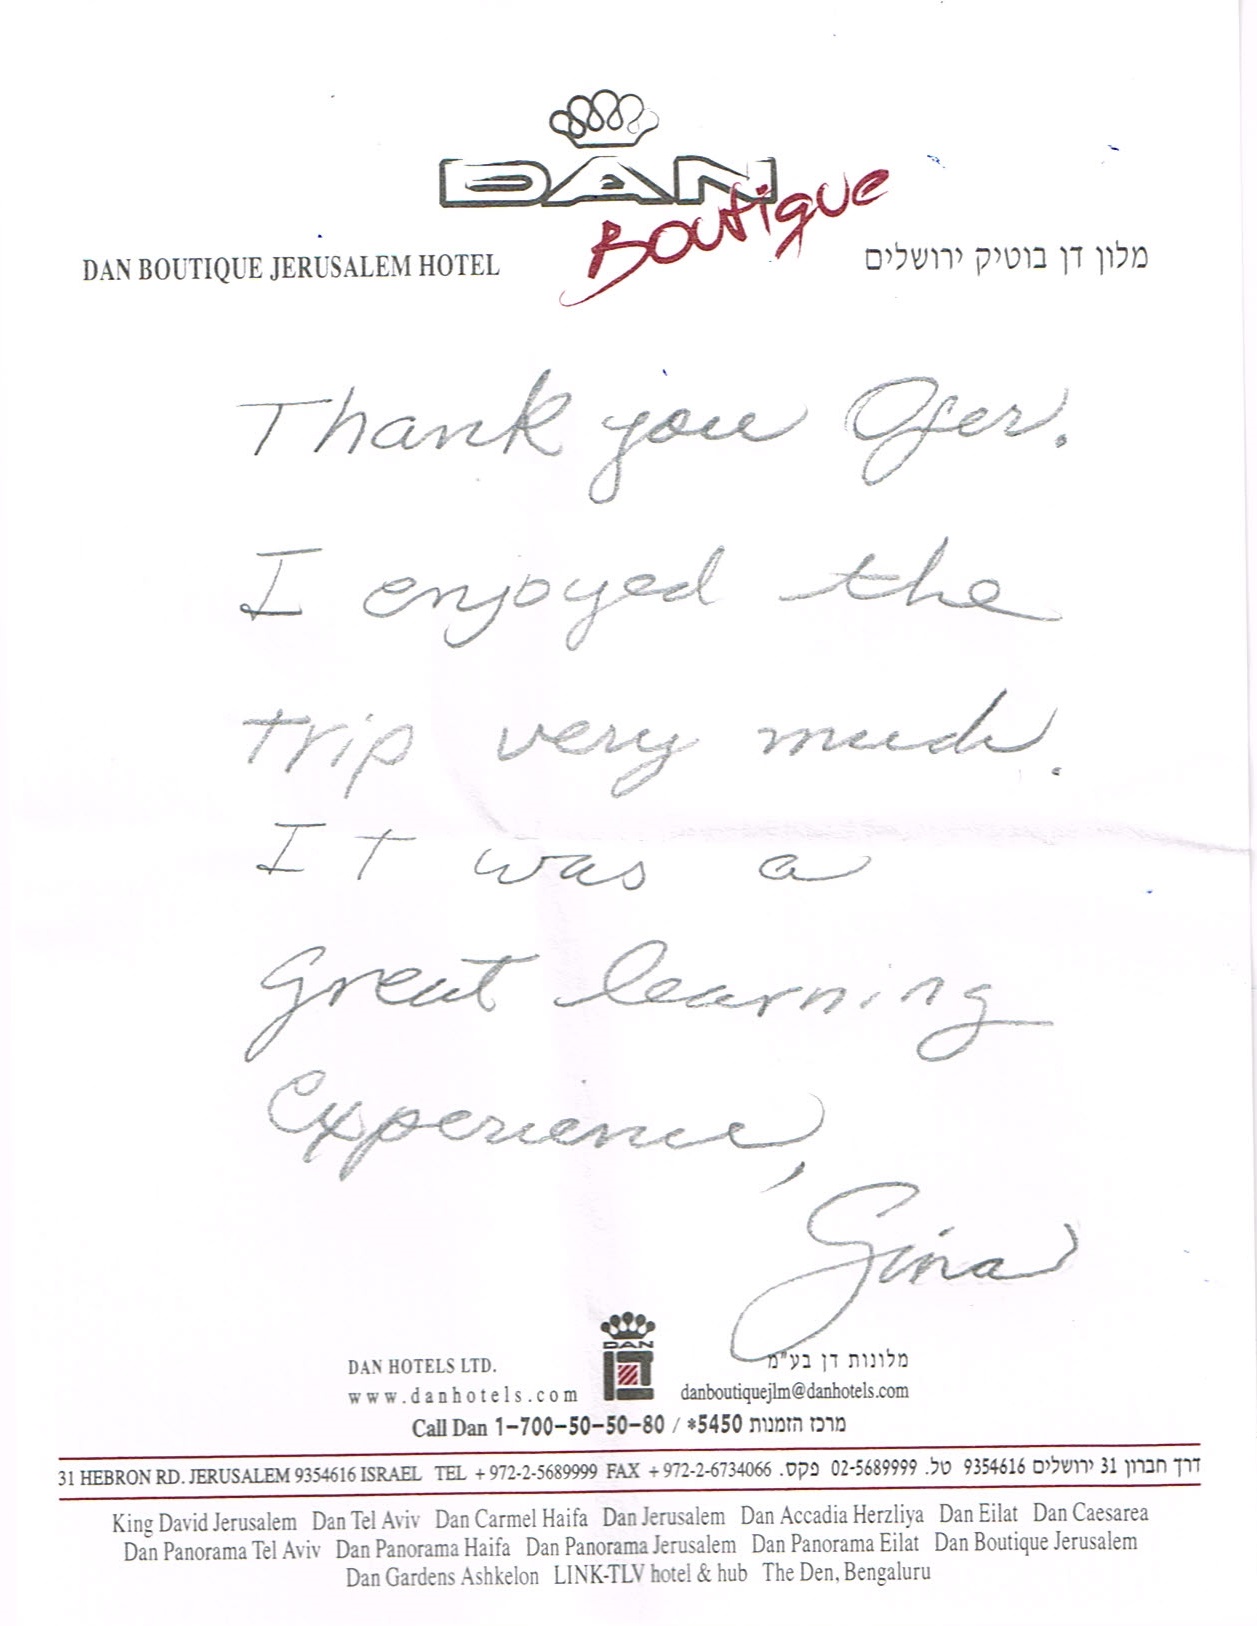 DAN
Boutique
DAN BOUTIQUE JERUSALEM HOTEL
מלון דן בוטיק ירושלים
Thank you Ofer.
I enjoyed the
trip very much.
It was a
great learning
experience,
Gina
DAN
DAN HOTELS LTD.
מלונות דן בע"מ
www.danhotels.com
danboutiquejlm@danhotels.com
Call Dan 1-700-50-50-80 / *5450 מרכז הזמנות
31 HEBRON RD. JERUSALEM 9354616 ISRAEL TEL +972-2-5689999 FAX +972-2-6734066 דרך חברון 31 ירושלים 9354616 טל. 02-5689999 פקס.
King David Jerusalem Dan Tel Aviv Dan Carmel Haifa Dan Jerusalem Dan Accadia Herzliya Dan Eilat Dan Caesarea
Dan Panorama Tel Aviv Dan Panorama Haifa Dan Panorama Jerusalem Dan Panorama Eilat Dan Boutique Jerusalem
Dan Gardens Ashkelon LINK-TLV hotel & hub The Den, Bengaluru